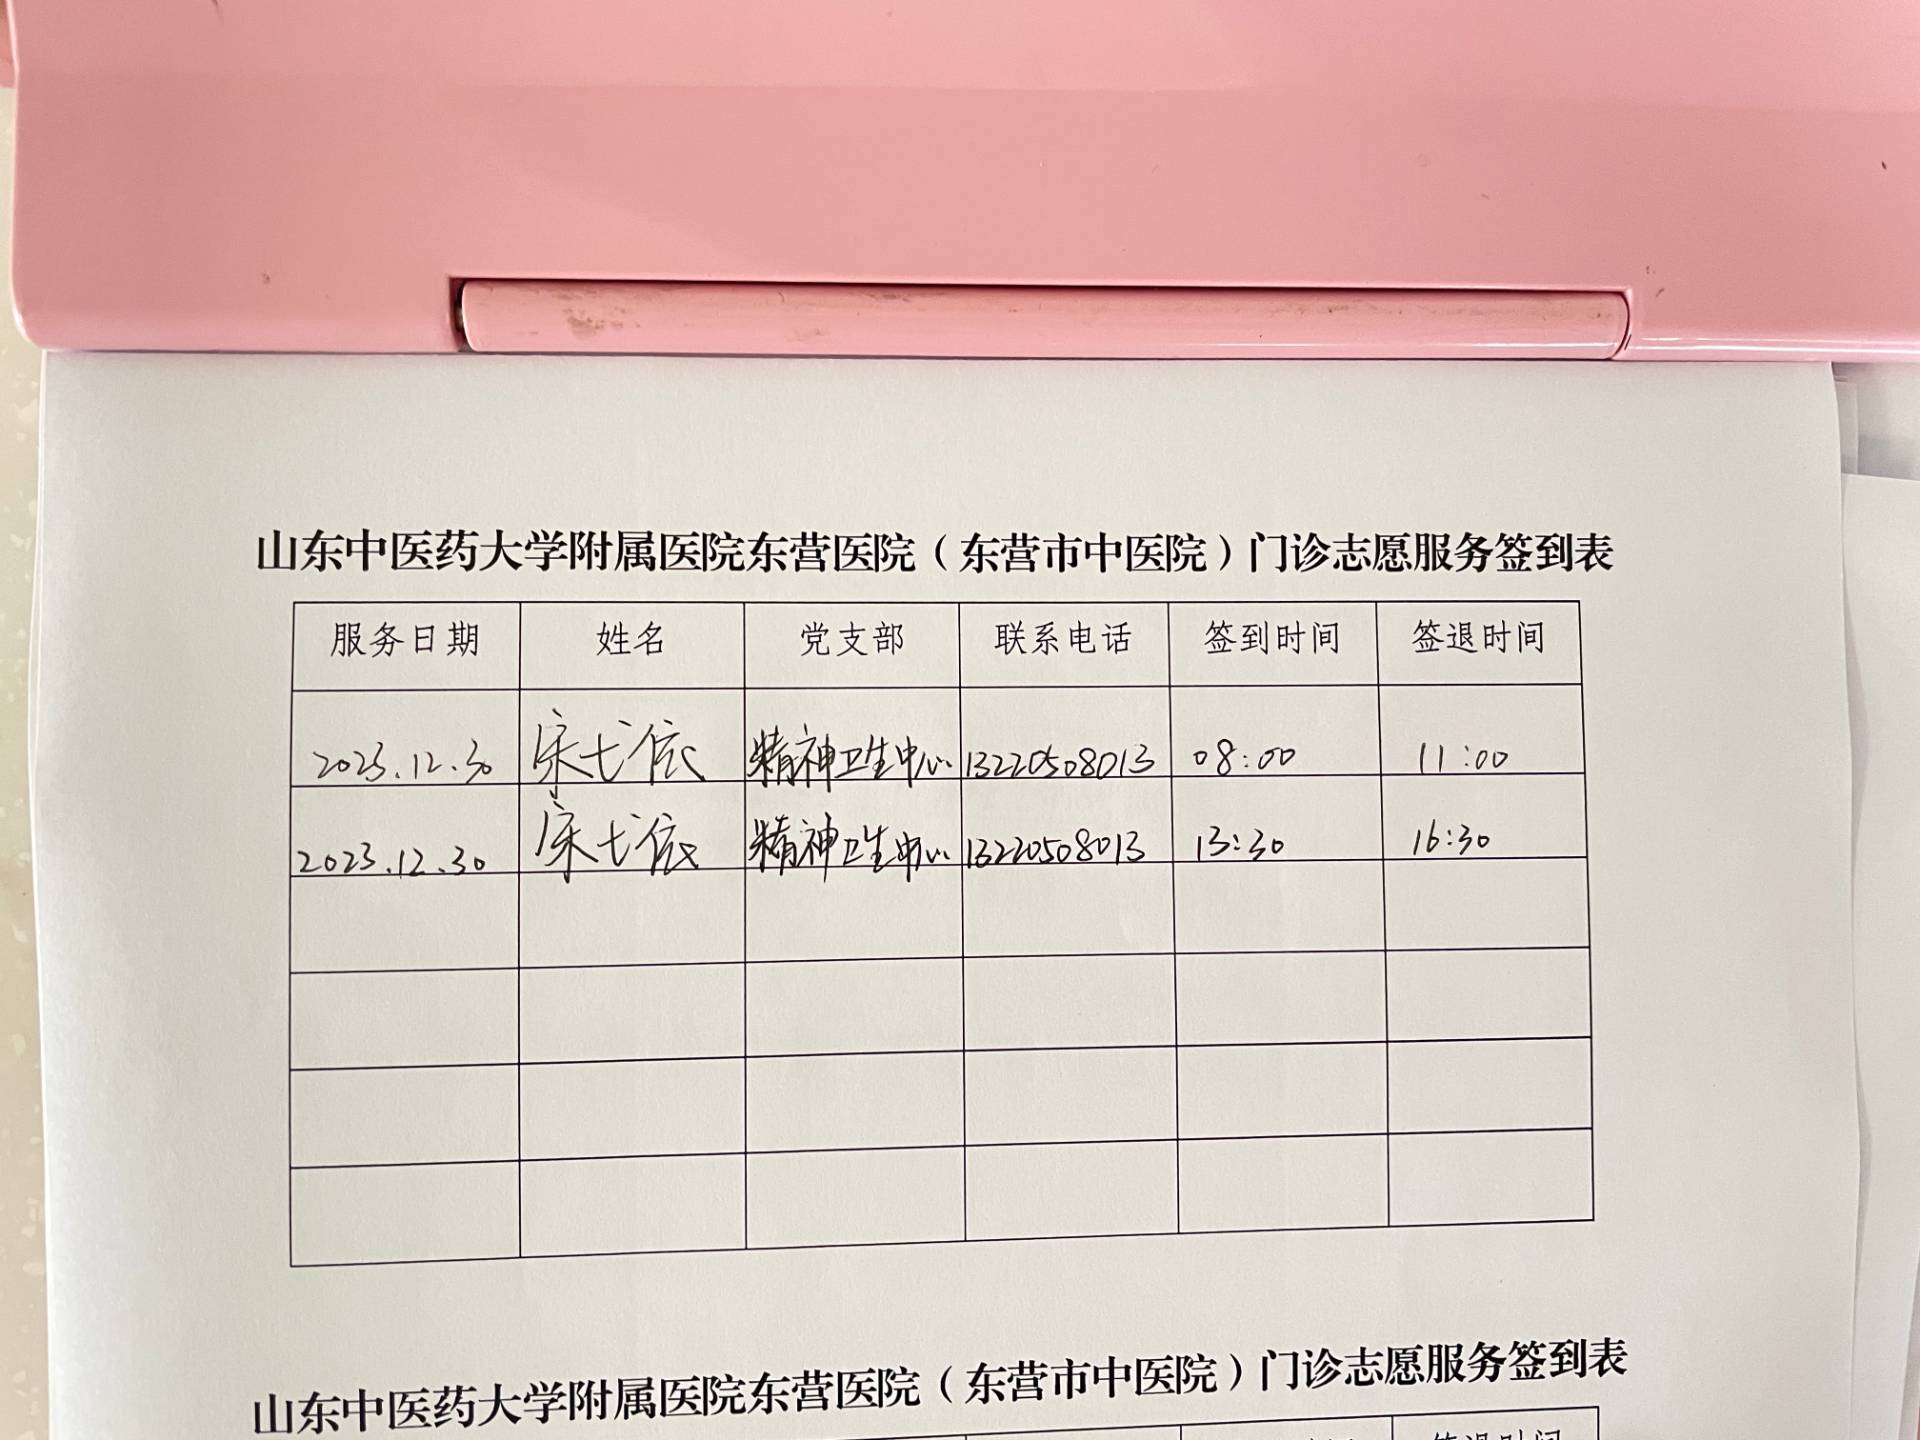 山东中医药大学附属医院东营医院（东营市中医院）门诊志愿服务签到表
服务日期 姓名 党支部 联系电话 签到时间 签退时间
2023.12.30 宋弋依 精神卫生中心 13220508013 08:00 11:00
2023.12.30 宋弋依 精神卫生中心 13220508013 13:30 16:30
山东中医药大学附属医院东营医院（东营市中医院）门诊志愿服务签到表
签退时间